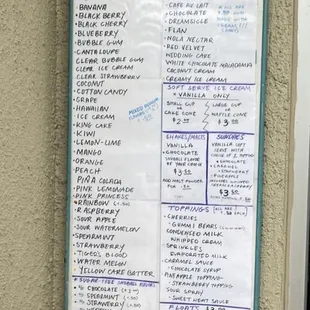 BANANA
BLACK BERRY
BLACK CHERRY
BLUEBERRY
BUBBLE GUM
CANTALOUPE
CLEAR BUBBLE GUM
CLEAR ICE CREAM
CLEAR STRAWBERRY
COCONUT
COTTON CANDY
GRAPE
HAWAIIAN
ICE CREAM
KING CAKE
KIWI
LEMON-LIME
MANGO
ORANGE
PEACH
PIÑA COLADA
PINK LEMONADE
PINK PRINCESS
RAINBOW
RASPBERRY
SOUR APPLE
SOUR WATERMELON
SPEARMINT
STRAWBERRY
TIGERS BLOOD
WATER MELON
YELLOW CAKE BATTER
SUGAR-FREE SNOBALL
CHOCOLATE
SPEARMINT
STRAWBERRY
CAFE AU LAIT
CHOCOLATE
DREAMSICLE
FLAN
NOLA NECTAR
RED VELVET
WEDDING CAKE
WHITE CHOCOLATE MACADAMIA
COCONUT CREAM
CREAMY ICE CREAM
SOFT SERVE ICE CREAM
VANILLA ONLY
SMALL CUP
OR
CAKE CONE
$2.00
LARGE CUP
OR
WAFFLE CONE
$3.50
SHAKES/MALTS
VANILLA
CHOCOLATE
SNOBALL FLAVOR
OF YOUR CHOICE
ADD MALT POWDER
SUNDAES
VANILLA SOFT
SERVE WITH
CHOCOLATE
CARAMEL
STRAWBERRY
PINEAPPLE
$3.50
TOPPINGS
CHERRIES
GUMMI BEARS
CONDENSED MILK
WHIPPED CREAM
SPRINKLES
EVAPORATED MILK
CARAMEL SAUCE
CHOCOLATE SYRUP
PINEAPPLE TOPPING
STRAWBERRY TOPPING
SOUR SPRAY
SWEET HEAT SAUCE
FLOATS